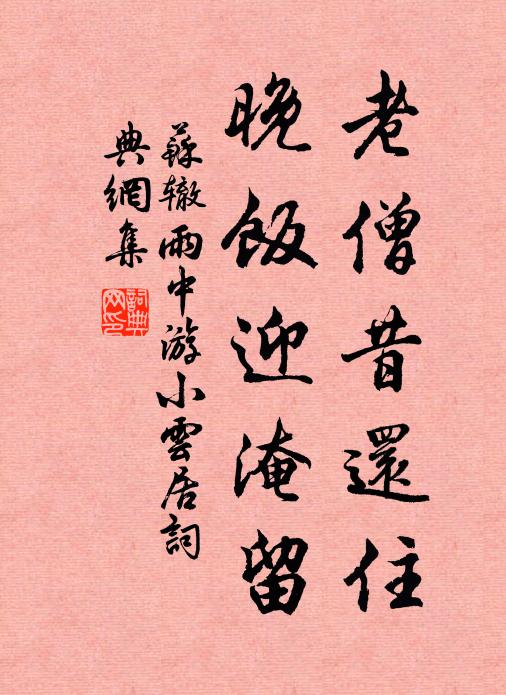 老僧昔還住
晚飯迎淹留
蘇辙雨中游小雲居詞
典網集
詞典網印